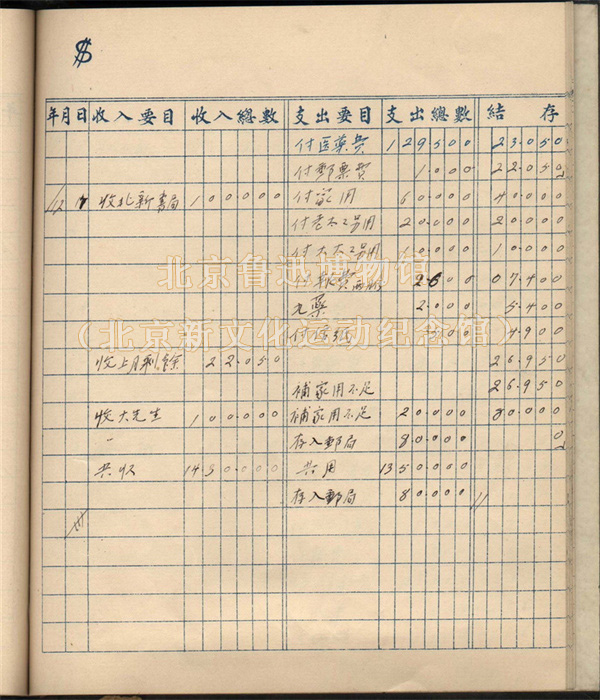 $
年 月 日 收入要目 收入總數 支出要目 支出總數 結存
付医藥费 129.500 23.050
付郵票费 1.000 22.050
12 收北新書局 100.000 付家用 60.000 40.000
付老太太另用 20.000 20.000
付太太另用 10.000 10.000
付報费 2.600 07.400
丸藥 2.000 5.400
付 .500 4.900
收上月剩餘 22.050 26.950
補家用不足 26.950
收大先生 100.000 補家用不足 20.000 80.000
存入郵局 80.000 0
共收 1430.000 共用 1350.000
存入郵局 80.000
北京鲁迅博物馆
（北京新文化运动纪念馆）